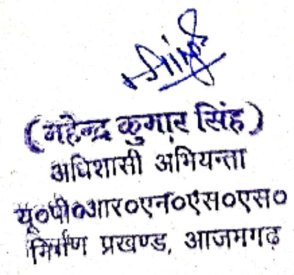 (महेन्द्र कुमार सिंह)
अधिशासी अभियन्ता
यू०पी०आर०एन०एस०एस०
निर्माण प्रखण्ड, आजमगढ़